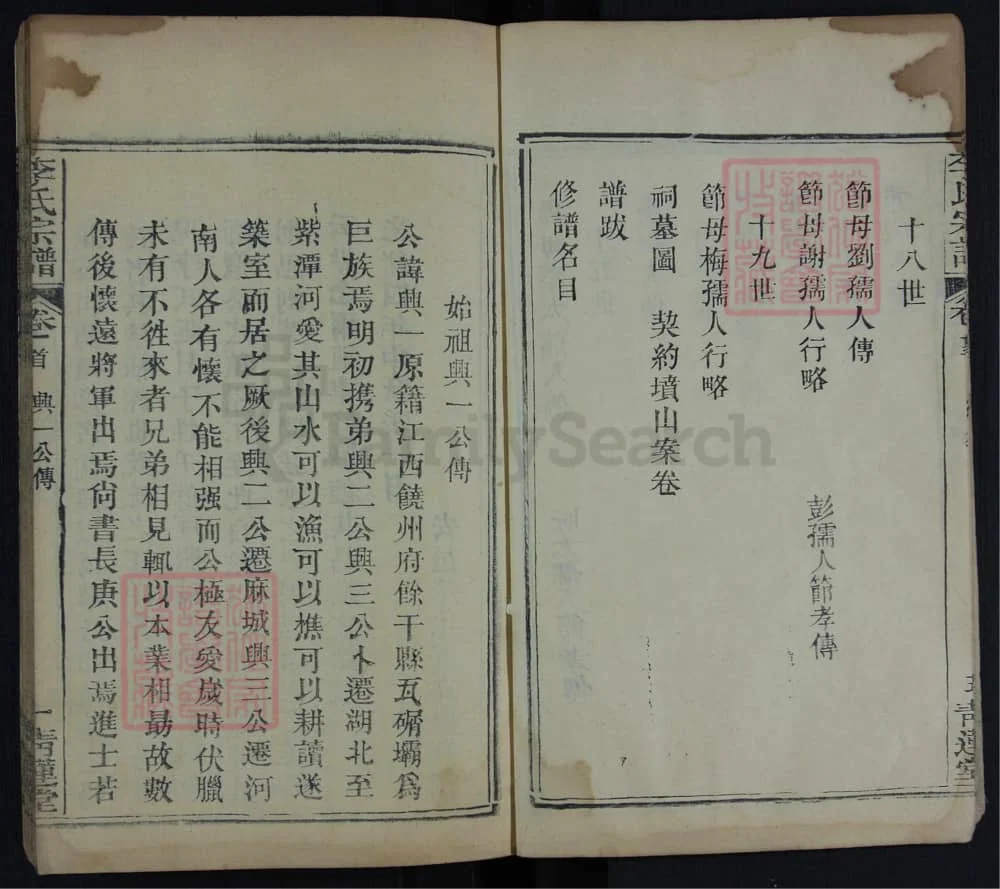 李氏宗譜
卷首
十八世
節母劉孺人傳
節母謝孺人行略
彭孺人節孝傳
十九世
節母梅孺人行略
祠墓圖 契約墳山案卷
譜跋
修譜名目
青蓮堂
始祖興一公傳
公諱興一原籍江西饒州府餘干縣瓦礵壩為
巨族焉明初携弟興二公興三公卜遷湖北至
紫潭河愛其山水可以漁可以樵可以耕讀遂
築室而居之厥後興二公遷麻城興三公遷河
南人各有懷不能相强而公極友愛歲時伏臘
未有不徃來者兄弟相見輒以本業相勗故數
傳後懷遠將軍出焉尙書長庚公出焉進士若
李氏宗譜
卷首 興一公傳
一 青蓮堂
FamilySearch